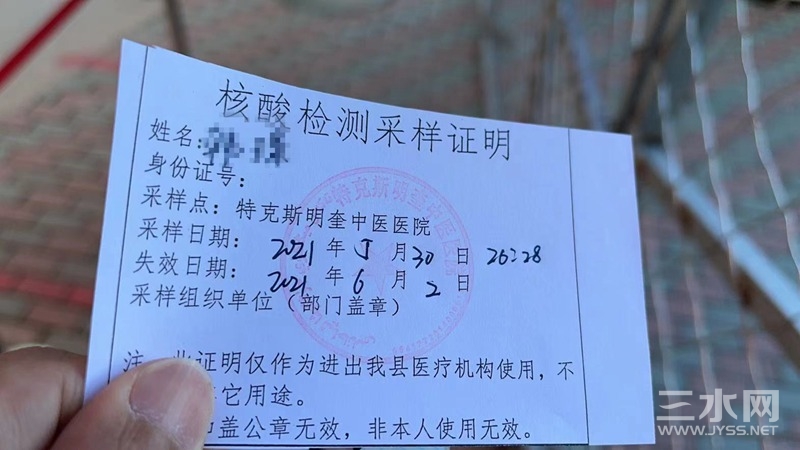 核酸检测采样证明
姓名:
身份证号:
采样点: 特克斯明奎中医医院
采样日期: 2021 年 5 月 30 日 20:28
失效日期: 2021 年 6 月 2 日
采样组织单位（部门盖章）
特克斯明奎中医医院
注 此证明仅作为进出我县医疗机构使用，不
它用途。
盖公章无效，非本人使用无效。
三水网
WWW.JYSS.NET